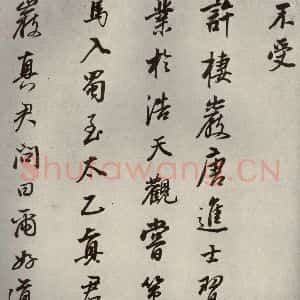 不受
許棲巖唐進士習
業於浩天觀嘗第
馬入蜀至太乙真君
巖真君問曰爾好道
Shufawang.CN